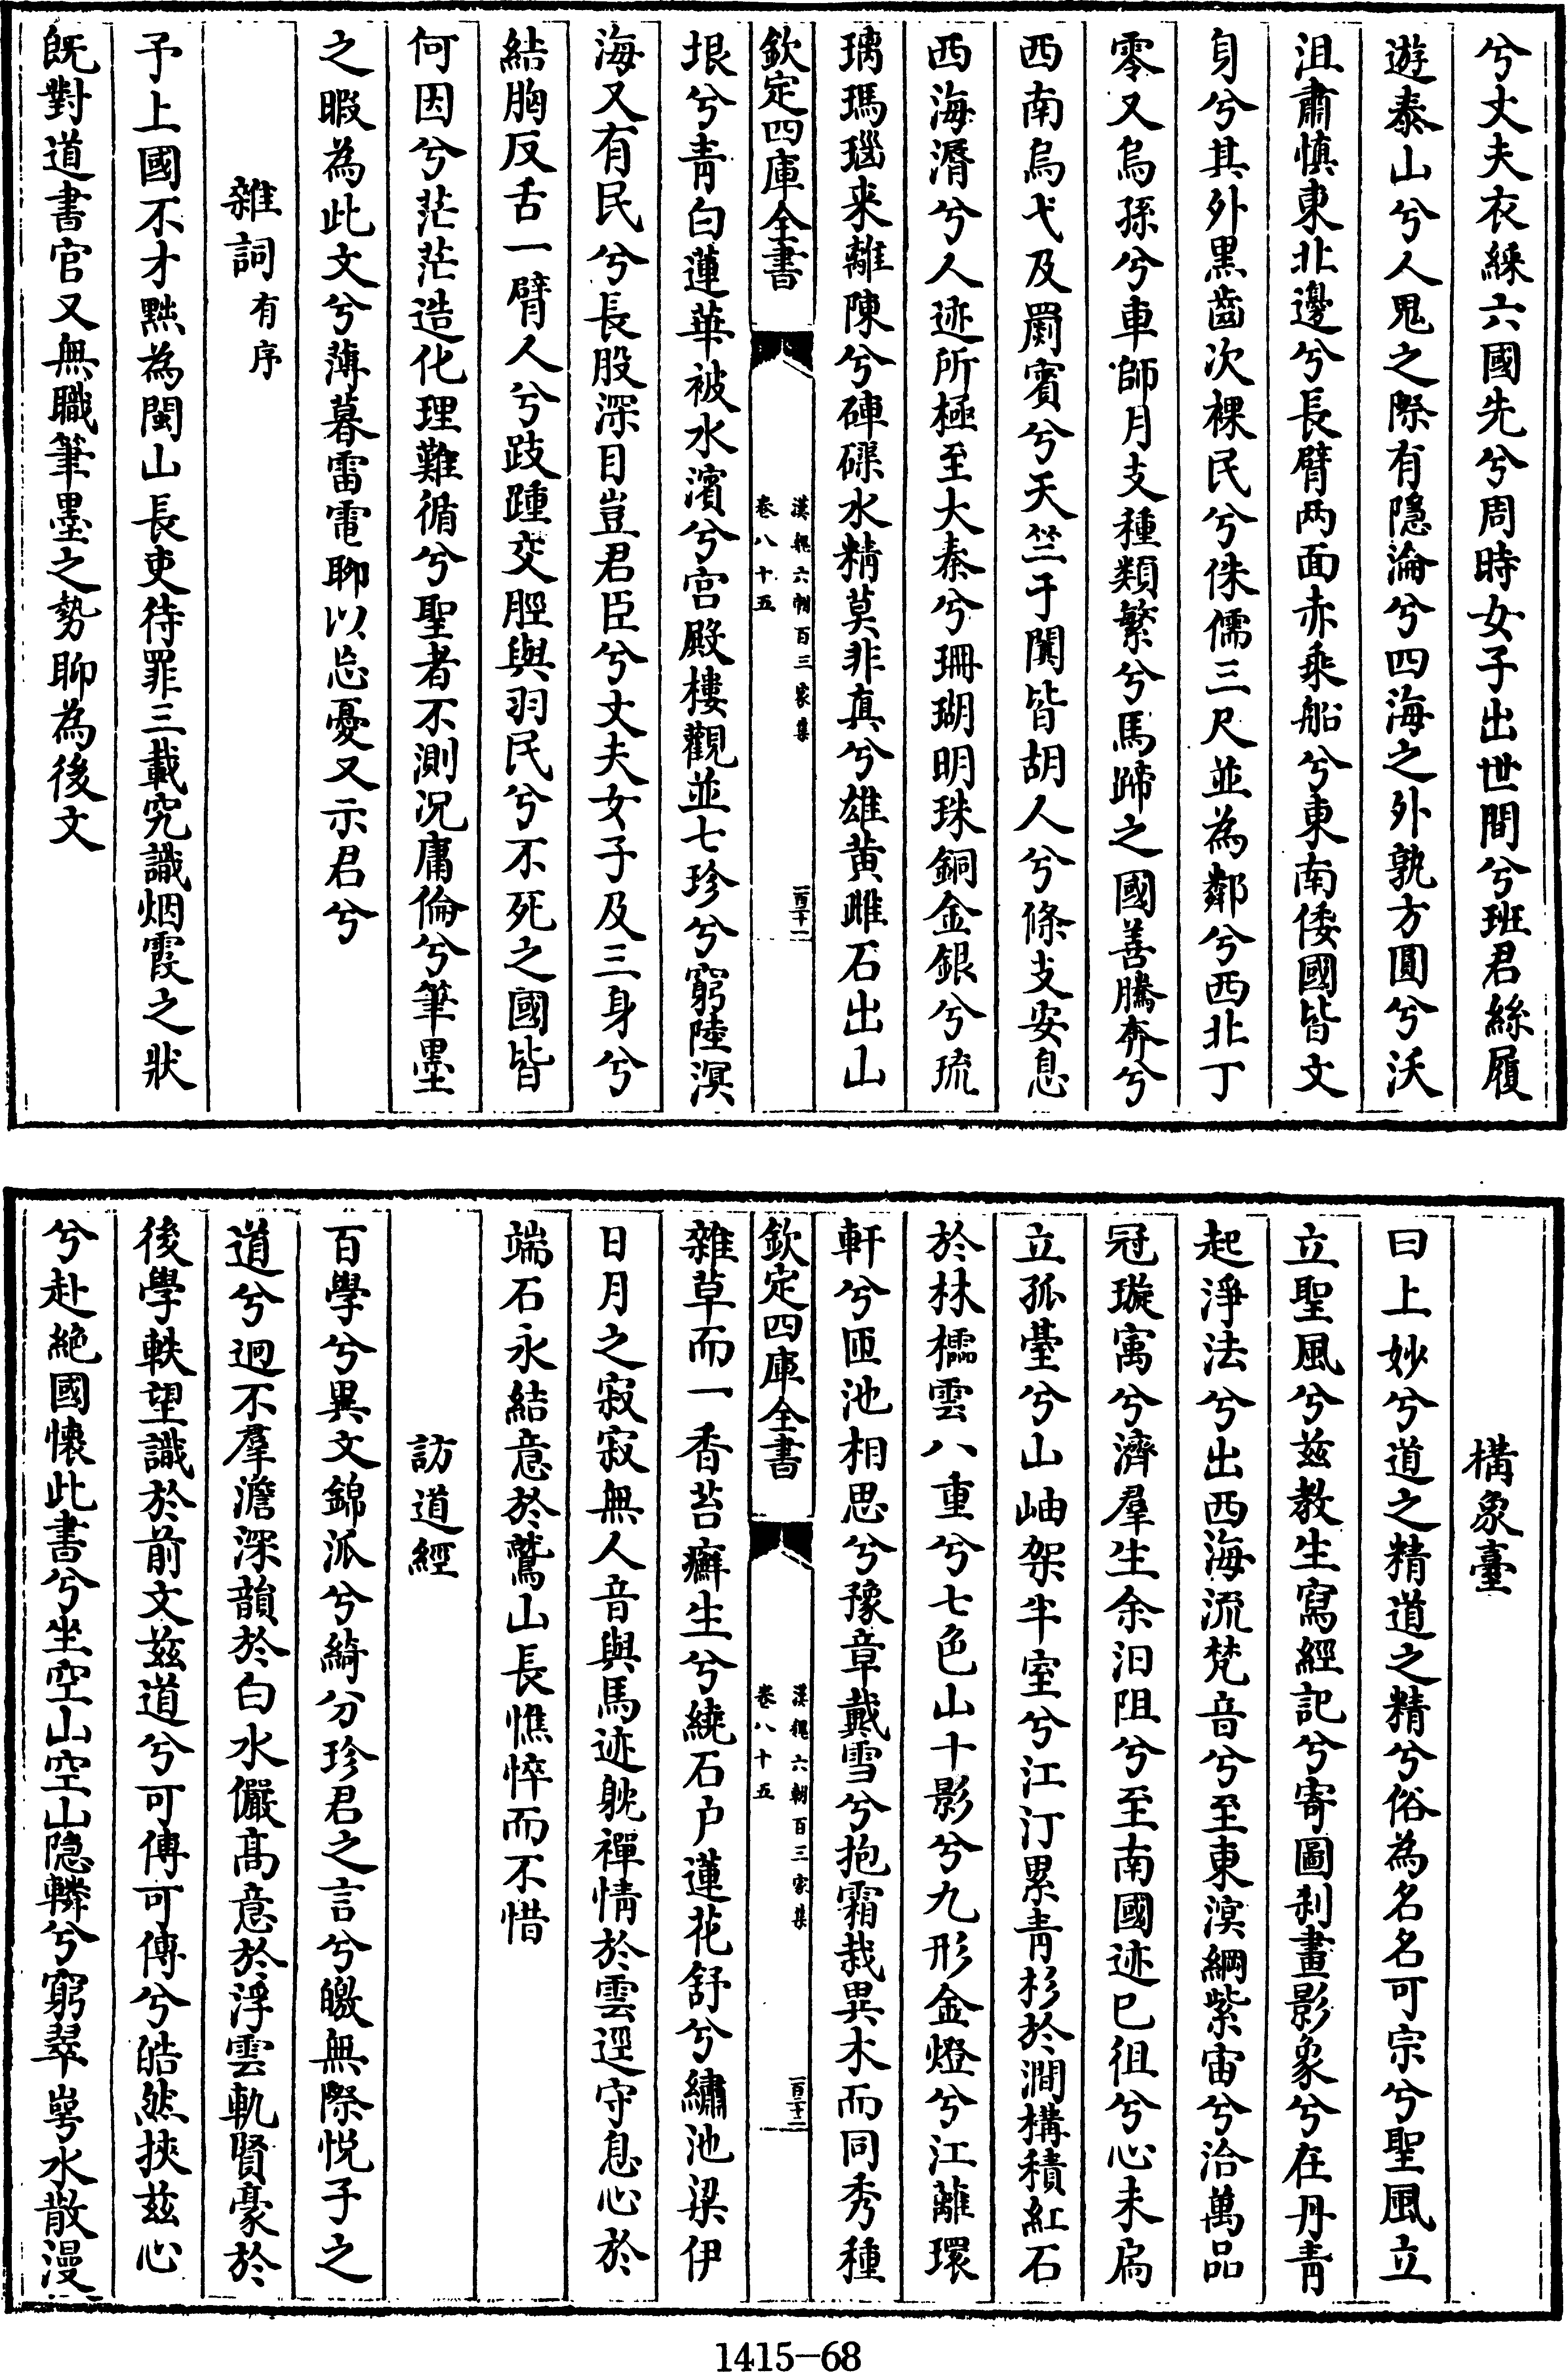 兮丈夫衣綵六國先兮周時女子出世間兮班君絲履
遊泰山兮人鬼之際有隱淪兮四海之外孰方圓兮沃
沮肅慎東北邊兮長臂兩面亦乘船兮東南倭國皆文
身兮其外黑齒次裸民兮侏儒三尺並為鄰兮西北丁
零又烏孫兮車師月支種類繁兮馬蹄之國善騰奔兮
西南烏弋及罽賓兮天竺于闐皆胡人兮條支安息
西海漘兮人迹所極至大秦兮珊瑚明珠銅金銀兮琉
璃瑪瑙来離陳兮硨磲水精莫非真兮雄黄雌石出山
欽定四庫全書
漢魏六朝百三家集
卷八十五
一百二十一
垠兮青白蓮華被水濱兮宫殿樓觀並七珍兮窮陸溟
海又有民兮長股深目豈君臣兮丈夫女子及三身兮
結胸反舌一臂人兮跂踵交脛與羽民兮不死之國皆
何因兮茫茫造化理難循兮聖者不測况庸倫兮筆墨
之暇為此文兮薄暮雷電聊以忘憂又示君兮
雜詞有序
予上國不才黜為閩山長吏待罪三載究識烟霞之狀
既對道書官又無職筆墨之勢聊為後文
構象臺
曰上妙兮道之精道之精兮俗為名名可宗兮聖風立
立聖風兮兹教生寫經記兮寄圖刹畫影象兮在丹青
起淨法兮出西海流梵音兮至東溟綱紫宙兮洽萬品
冠璇寓兮濟羣生余汨阻兮至南國迹已徂兮心未扃
立孤臺兮山岫架半室兮江汀累青杉於澗構積紅石
於林櫺雲八重兮七色山十影兮九形金燈兮江蘺環
軒兮匝池相思兮豫章戴雪兮抱霜栽異木而同秀種
欽定四庫全書
漢魏六朝百三家集
卷八十五
一百二十二
雜草而一香苔癬生兮繞石户蓮花舒兮繡池梁伊
日月之寂寂無人音與馬迹躭禪情於雲逕守息心於
端石永結意於鷲山長憔悴而不惜
訪道經
百學兮異文錦派兮綺分珍君之言兮皦無際悦子之
道兮迥不羣澹深韻於白水儼髙意於浮雲軌賢豪於
後學軼望識於前文兹道兮可傳可傳兮皓然挾兹心
兮赴絶國懷此書兮坐空山空山隱轔兮窮翠崿水散漫
1415-68